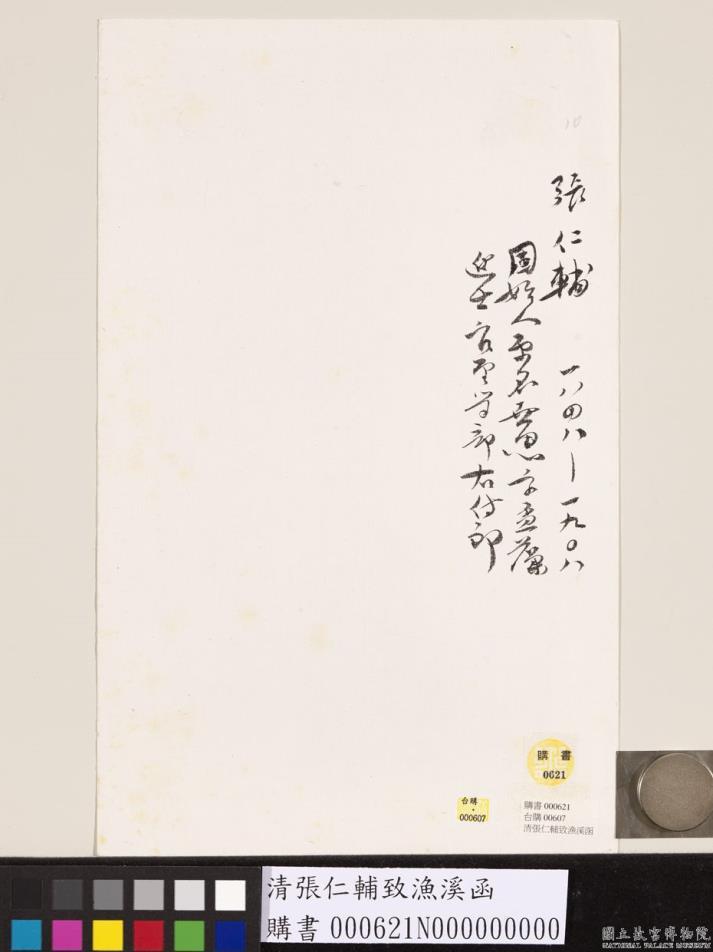 10
張仁輔 一八四八—一九〇八
固始人原名世恩字劭予
進士官至學部右侍郎
購書
0621
台購
000607
購書 000621
台購 00607
清張仁輔致漁溪函
清張仁輔致漁溪函
購書 000621N000000000
國立故宮博物院
NATIONAL PALACE MUSEUM